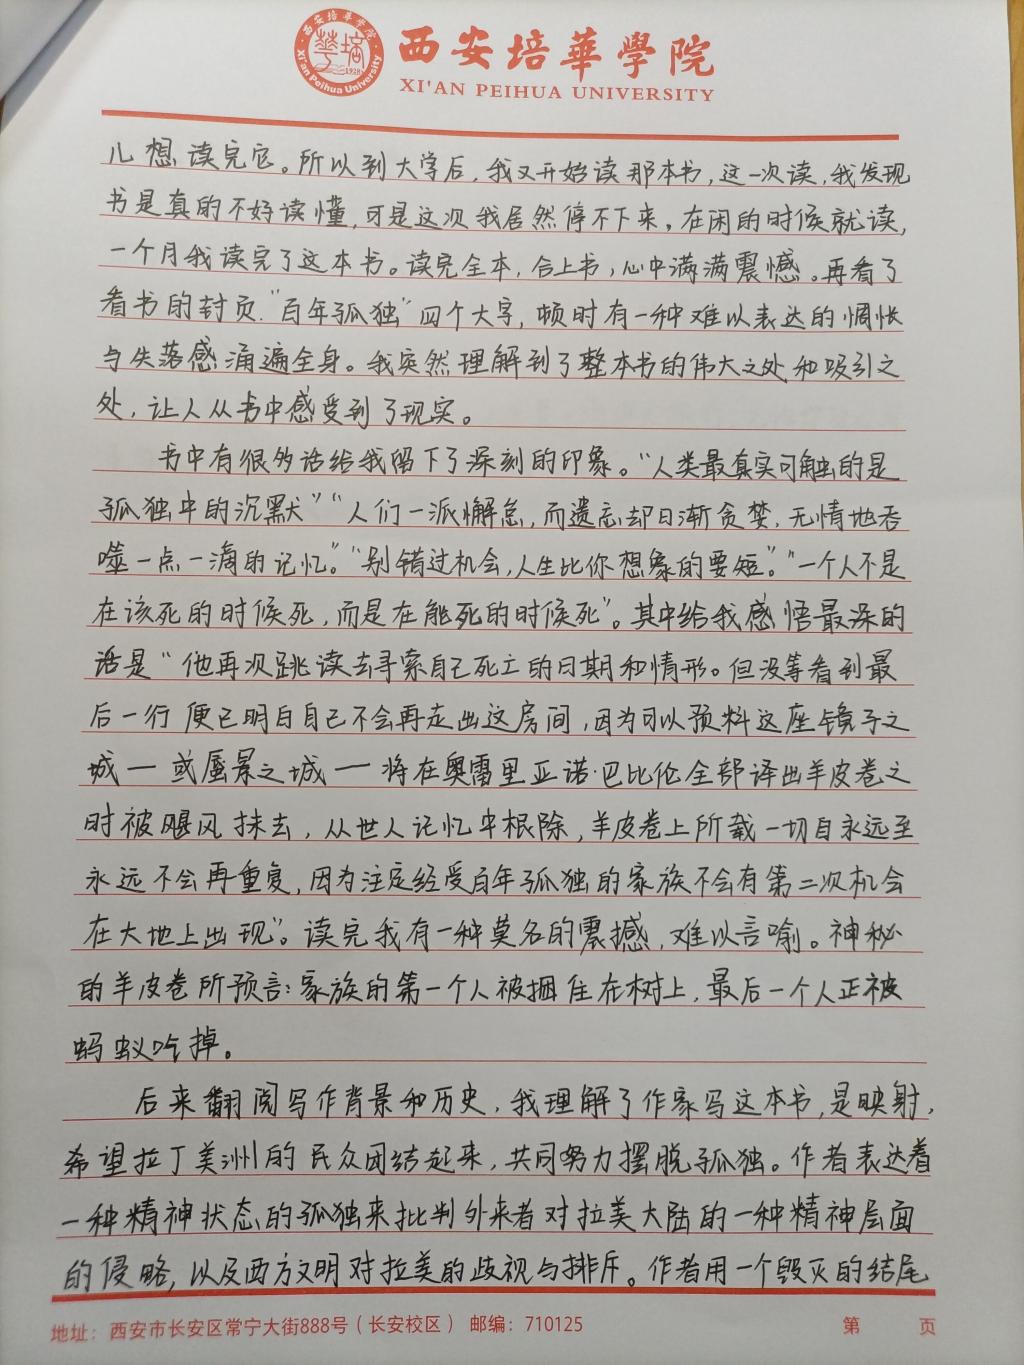 西安培華學院
XI'AN PEIHUA UNIVERSITY
西安培華学院
Xi'an Peihua University
1928
儿想读完它。所以到大学后，我又开始读那本书，这一次读，我发现
书是真的不好读懂，可是这次我居然停不下来，在闲的时候就读，
一个月我读完了这本书。读完全本，合上书，心中满满震憾。再看了
看书的封页"百年孤独"四个大字，顿时有一种难以表达的惆怅
与失落感涌遍全身。我突然理解到了整本书的伟大之处和吸引之
处，让人从书中感受到了现实。
书中有很多话给我留下了深刻的印象。"人类最真实可触的是
孤独中的沉默""人们一派懈怠，而遗忘却日渐贪婪，无情地吞
噬一点一滴的记忆。""别错过机会，人生比你想象的要短"。"一个人不是
在该死的时候死，而是在能死的时候死"。其中给我感悟最深的
话是"他再次跳读去寻索自己死亡的日期和情形。但没等看到最
后一行便已明白自己不会再走出这房间，因为可以预料这座镜子之
城—或蜃景之城—将在奥雷里亚诺·巴比伦全部译出羊皮卷之
时被飓风抹去，从世人记忆中根除，羊皮卷上所载一切自永远至
永远不会再重复，因为注定经受百年孤独的家族不会有第二次机会
在大地上出现"。读完我有一种莫名的震撼，难以言喻。神秘
的羊皮卷所预言：家族的第一个人被捆住在树上，最后一个人正被
蚂蚁吃掉。
后来翻阅写作背景和历史，我理解了作家写这本书，是映射，
希望拉丁美洲的民众团结起来，共同努力摆脱孤独。作者表达着
一种精神状态的孤独来批判外来者对拉美大陆的一种精神层面
的侵略，以及西方文明对拉美的歧视与排斥。作者用一个毁灭的结尾
地址：西安市长安区常宁大街888号（长安校区） 邮编：710125 第 页